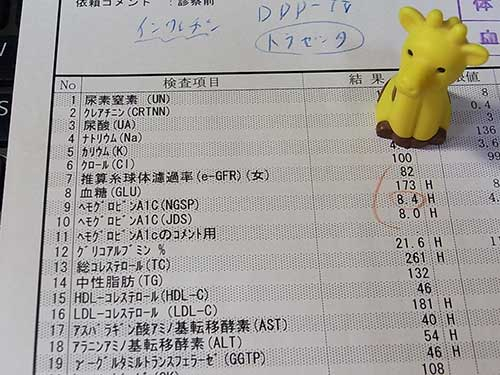 依頼コメント : 診察前
インクレチン
DDP-IV
トラゼンタ
体
No 検査項目 結果
1 尿素窒素 (UN) 8
2 クレアチニン (CRTNN) 0.4
3 尿酸(UA) 3
4 ナトリウム(Na) 136
5 カリウム(K) 3.6
6 クロール(Cl) 100 99
7 推算糸球体濾過率(e-GFR)(女) 82
8 血糖(GLU) 173 H
9 ヘモグロビンA1C(NGSP) 8.4 H
10 ヘモグロビンA1C(JDS) 8.0 H
11 ヘモグロビンA1cのコメント用
12 グリコアルブミン % 21.6 H
13 総コレステロール(TC) 261 H
14 中性脂肪(TG) 132
15 HDL-コレステロール(HDL-C) 46
16 LDL-コレステロール (LDL-C) 181 H
17 アスパラギン酸アミノ基転移酵素(AST) 40 H
18 アラニンアミノ基転移酵素(ALT) 54 H
19 γーグルタミルトランスフェラーゼ(GGTP) 46 H
108